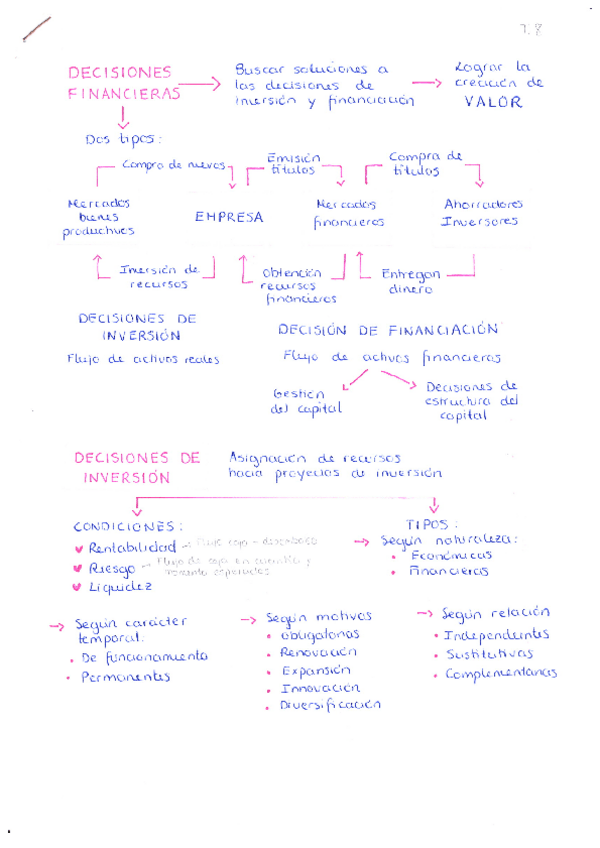 7.8
DECISIONES
FINANCIERAS
Buscar soluciones a
las decisiones de
inversión y financiación
Lograr la
creación de
VALOR
Dos tipos:
Compra de nuevos
Emisión
títulos
Compra de
títulos
Mercados
bienes
productivos
EMPRESA
Mercados
financieros
Ahorradores
Inversores
Inversión de
recursos
Obtención
recursos
financieros
Entregan
dinero
DECISIONES DE
INVERSIÓN
Flujo de activos reales
DECISIÓN DE FINANCIACIÓN
Flujo de activos financieros
Gestión
del capital
Decisiones de
estructura del
capital
DECISIONES DE
INVERSIÓN
Asignación de recursos
hacia proyectos de inversión
CONDICIONES:
Rentabilidad – Flujo caja - desembolso
Riesgo – Flujo de caja en cuantía y
momento esperados
Liquidez
TIPOS:
Según naturaleza:
Económicas
Financieras
Según carácter
temporal:
De funcionamiento
Permanentes
Según motivos
Obligatorias
Renovación
Expansión
Innovación
Diversificación
Según relación
Independientes
Sustitutivas
Complementarias